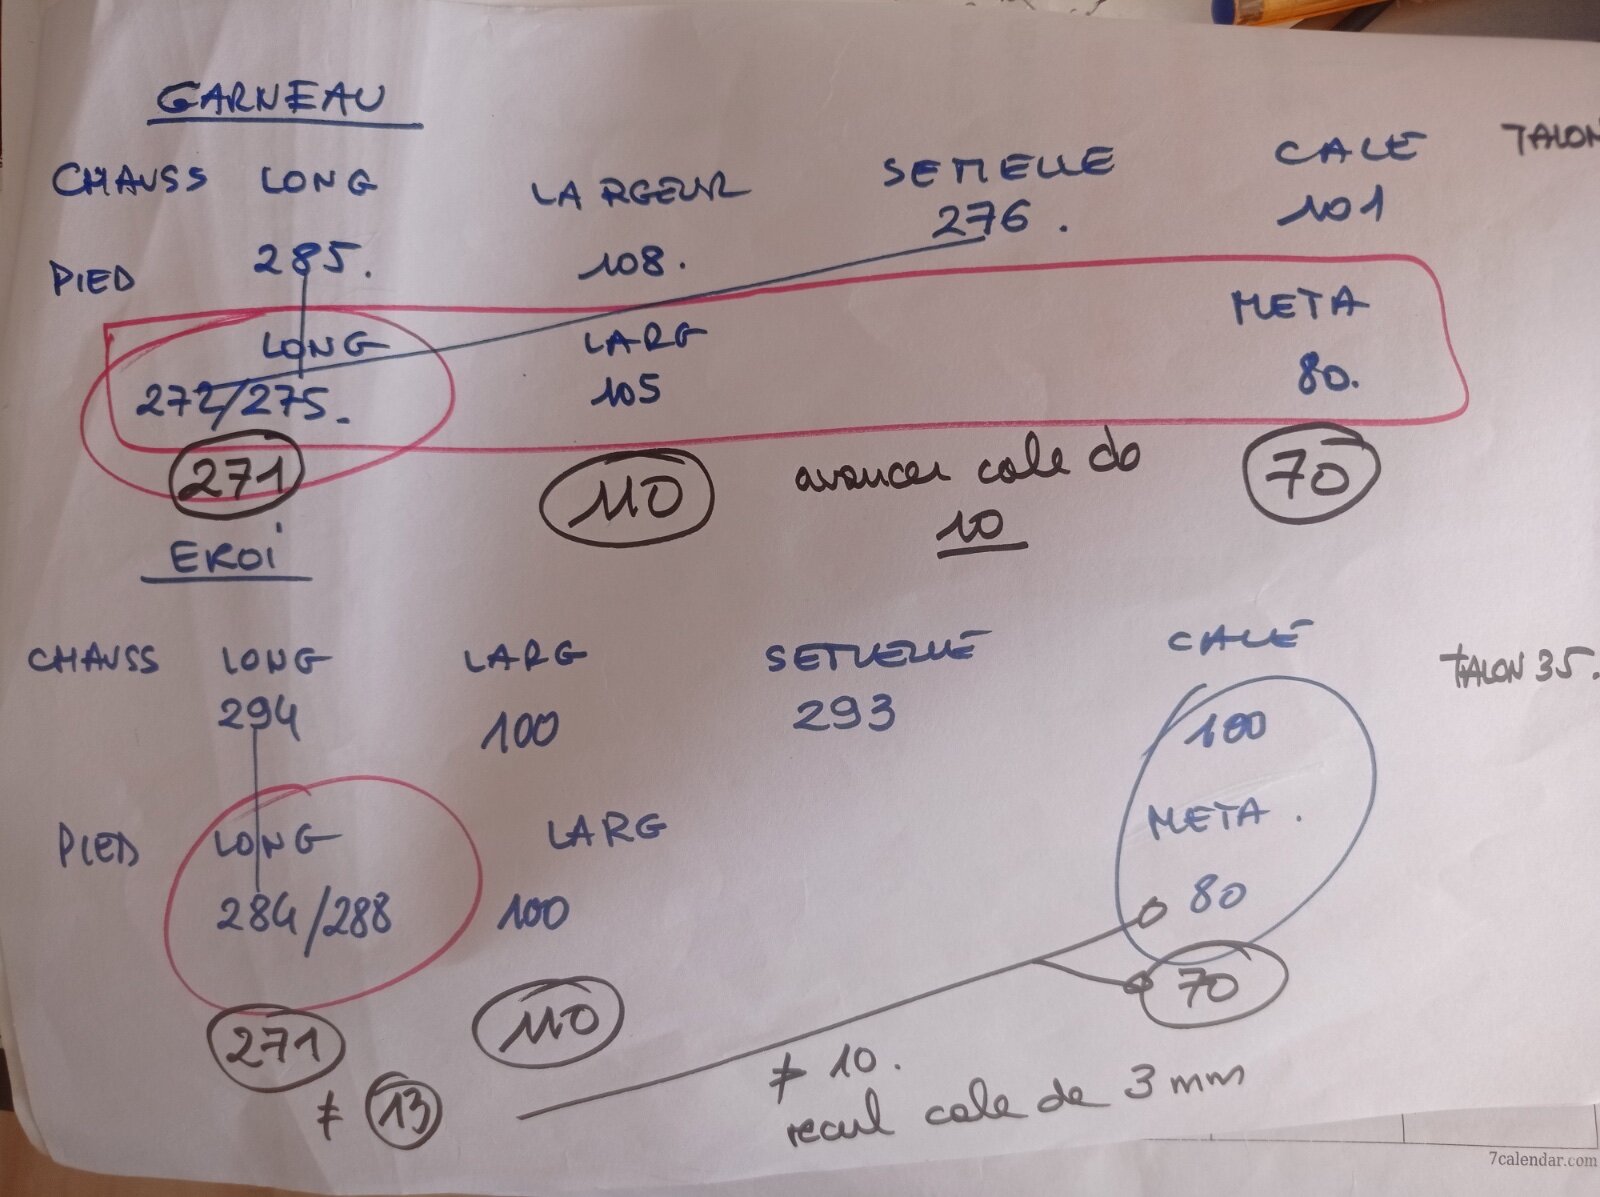 GARNEAU
CHAUSS LONG LARGEUR SEMELLE CALE TALON
285. 108. 276. 101
PIED
LONG LARG META
272/275. 105 80.
271 110 avancer cale de 70
10
EROI
CHAUSS LONG LARG SEMELLE CALE TALON 35.
294 100 293 100
PIED LONG LARG META.
284/288 100 80
271 110 70
≠ 13 ≠ 10.
recul cale de 3 mm
7calendar.com